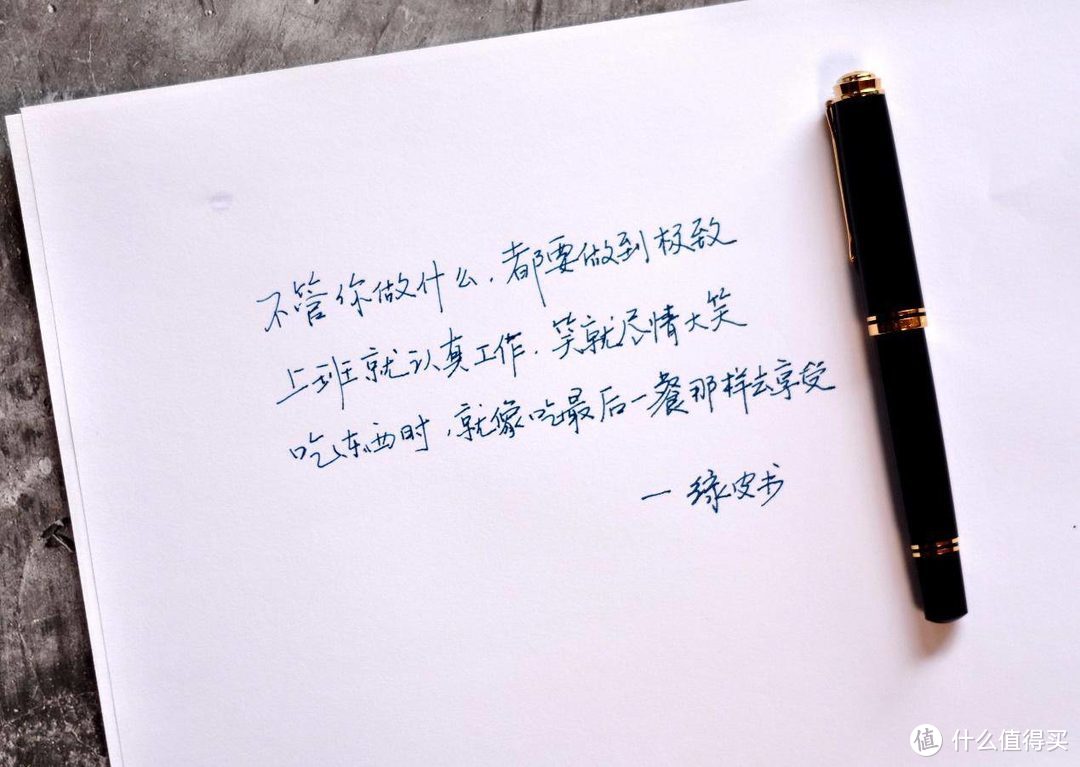 不管你做什么，都要做到极致
上班就认真工作，笑就尽情大笑
吃东西时，就像吃最后一餐那样去享受
一绿皮书
值 什么值得买